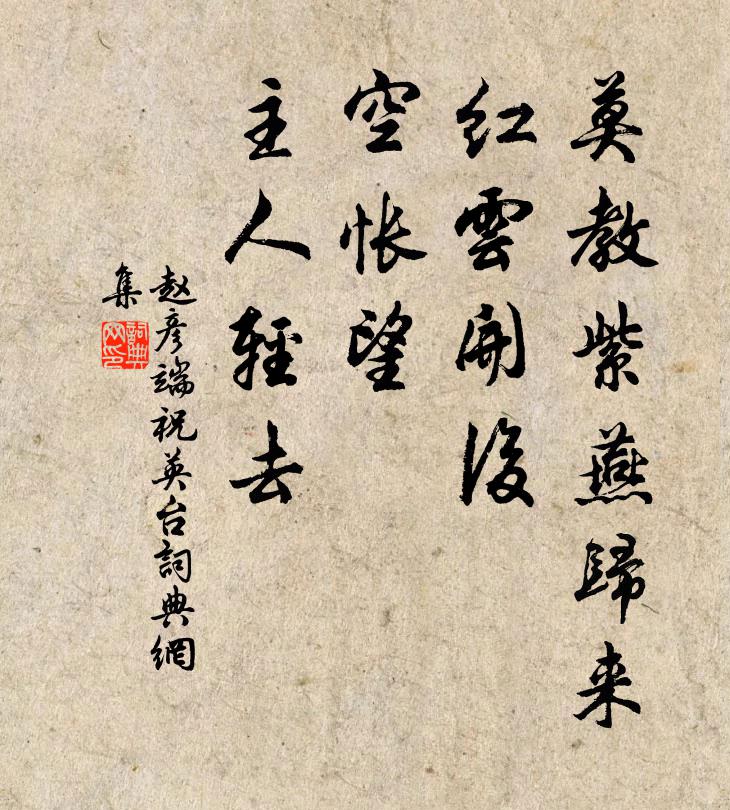 莫教紫燕歸来
紅雲開後
空悵望
主人輕去
赵彦端祝英台詞典網
集
詞典網印